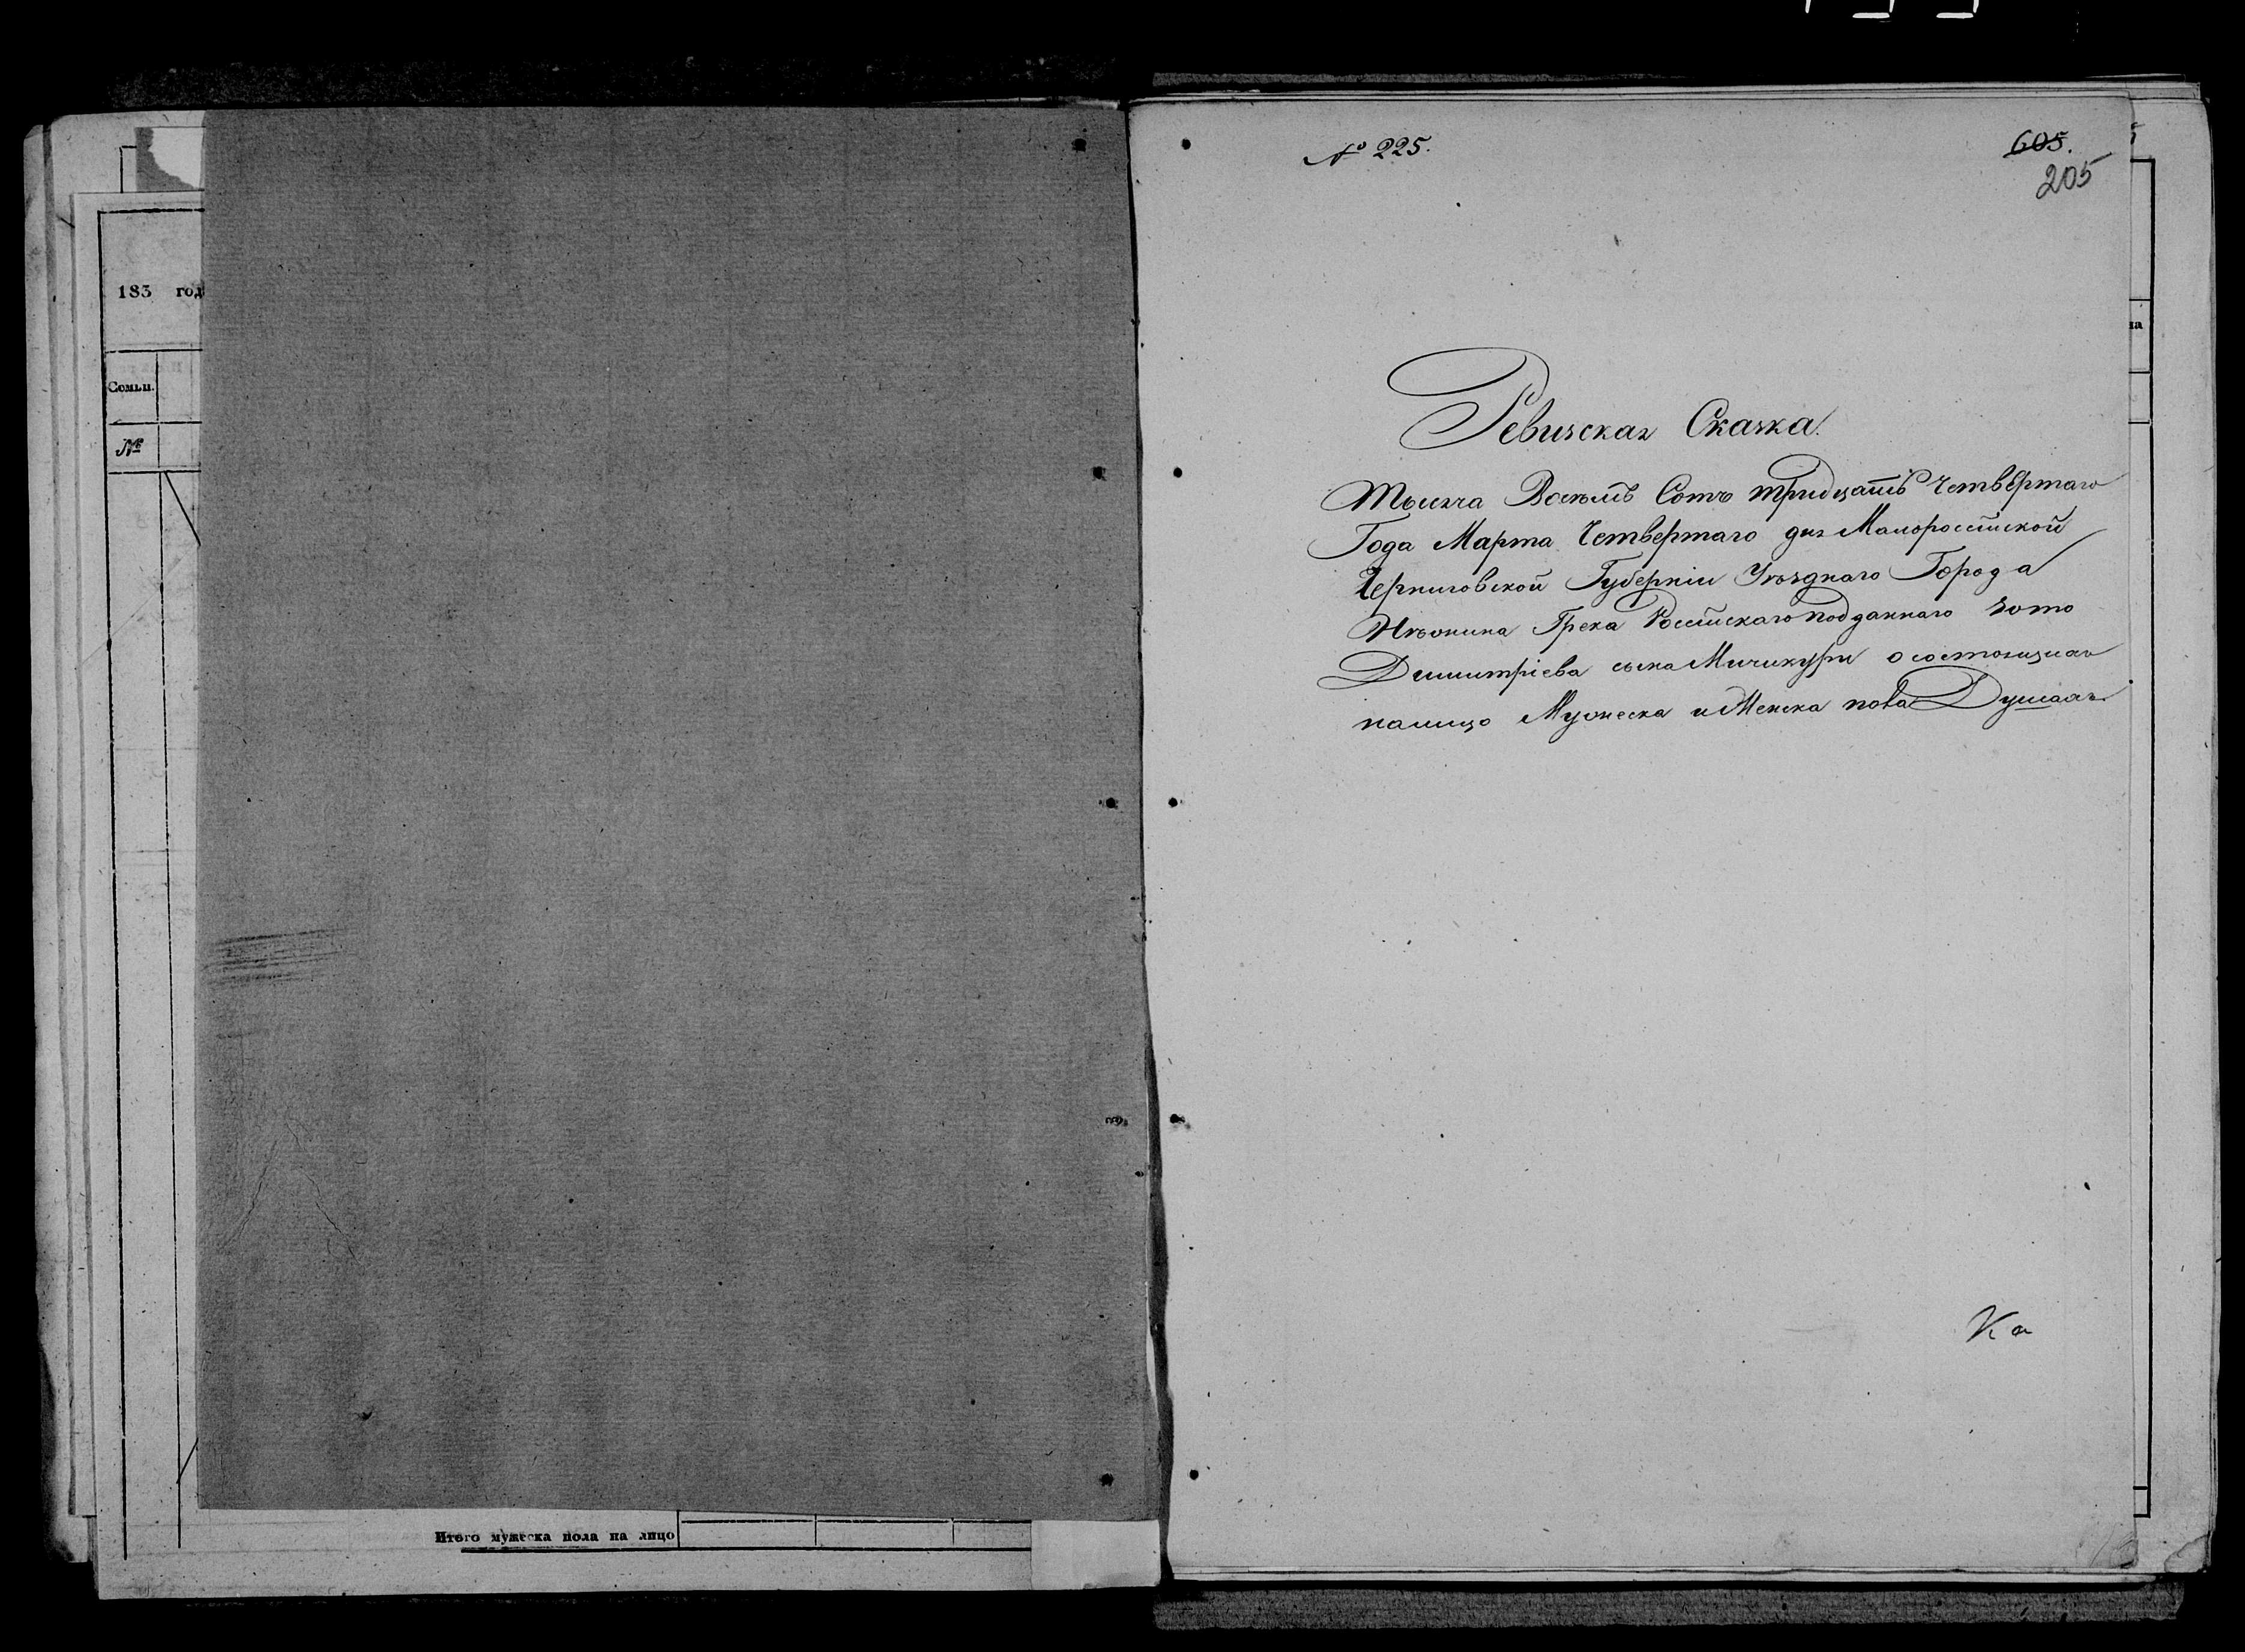 183 год
Семьи.
№
Итого мужеска пола на лицо
№ 225.
605.
205
Ревизская Сказка.
Тысяча Восемь Сотъ тридцать четвертаго
Года Марта Четвертаго дня Малороссійской
Черниговской Губерніи Уѣзднаго Города
Нѣжина Грека Россійскаго подданнаго Зото
Димитріева сына Мичикури о состоящихъ
налицо Мужеска и Женска пола Душахъ
Ка
на